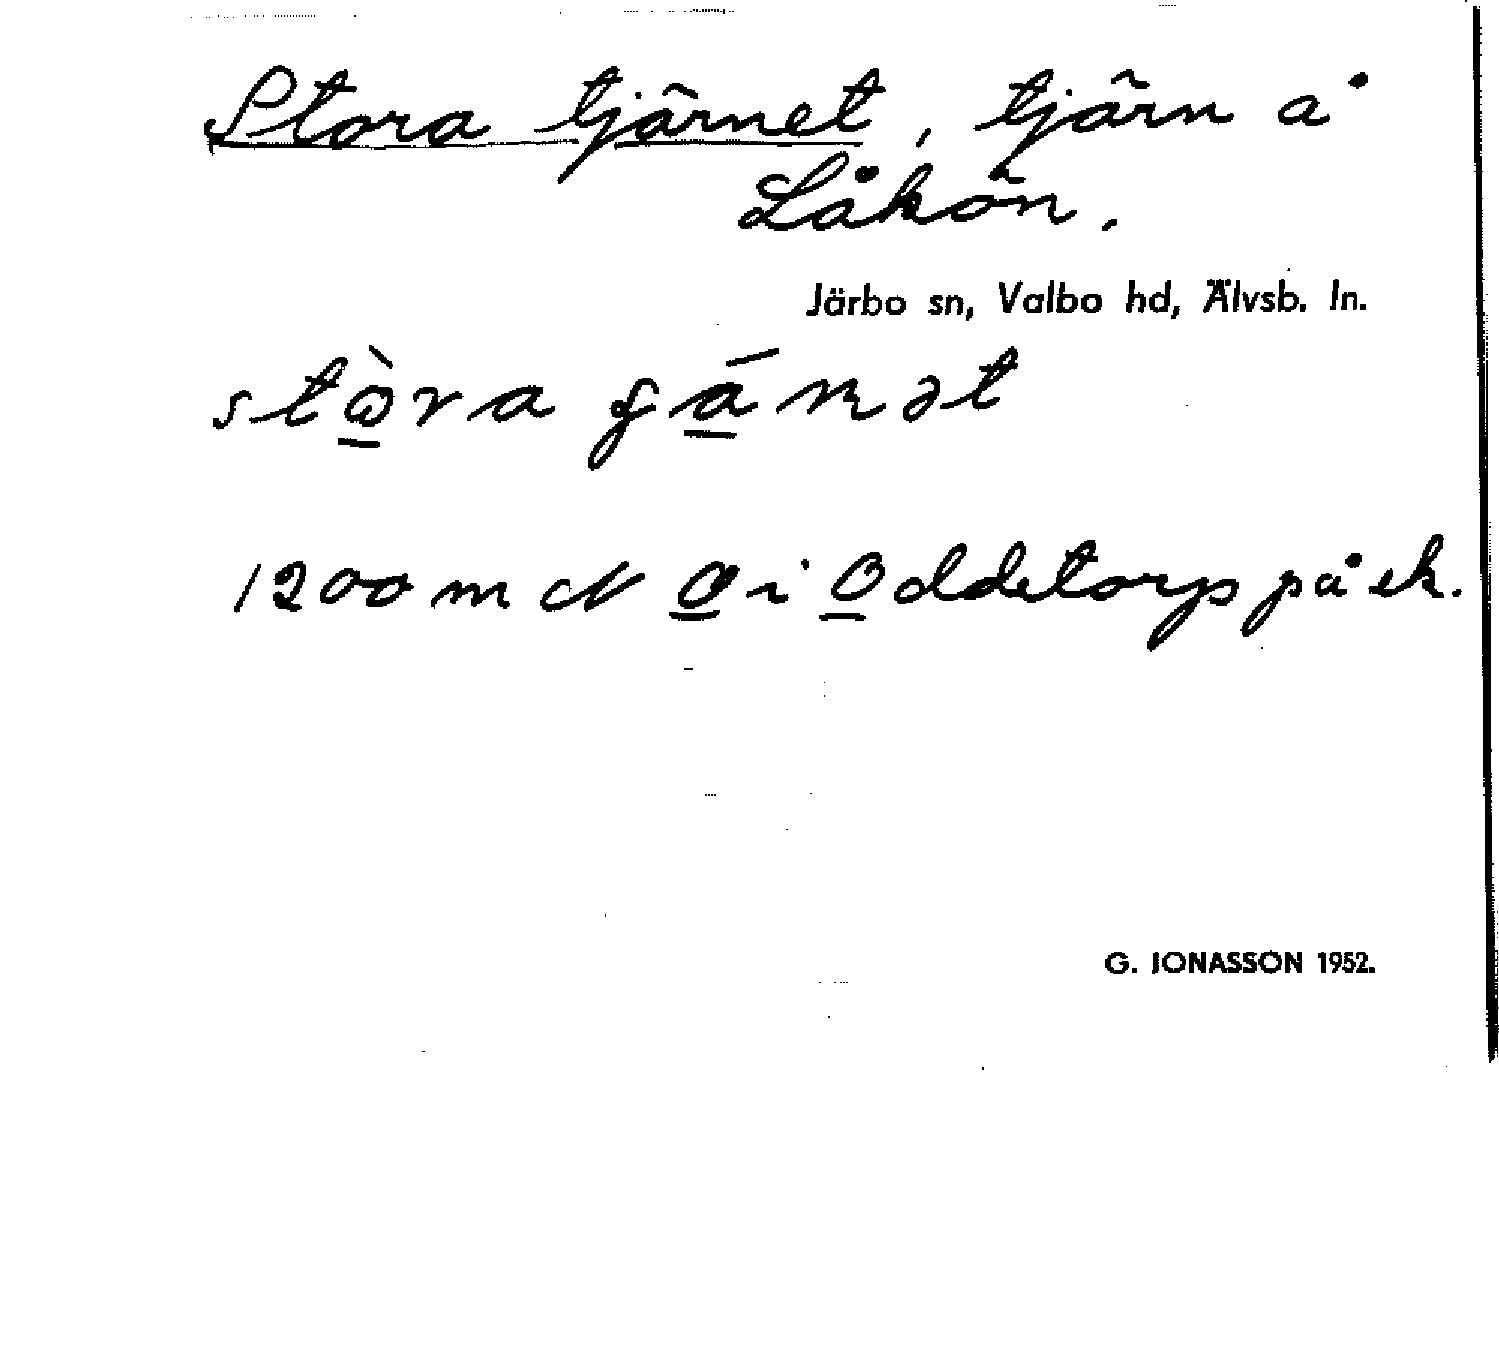 Stora tjärnet, tjärn å
Låkön.
Järbo sn, Valbo hd, Älvsb. ln.
1200 m N O i Oddetorp på ek.
G. JONASSON 1952.